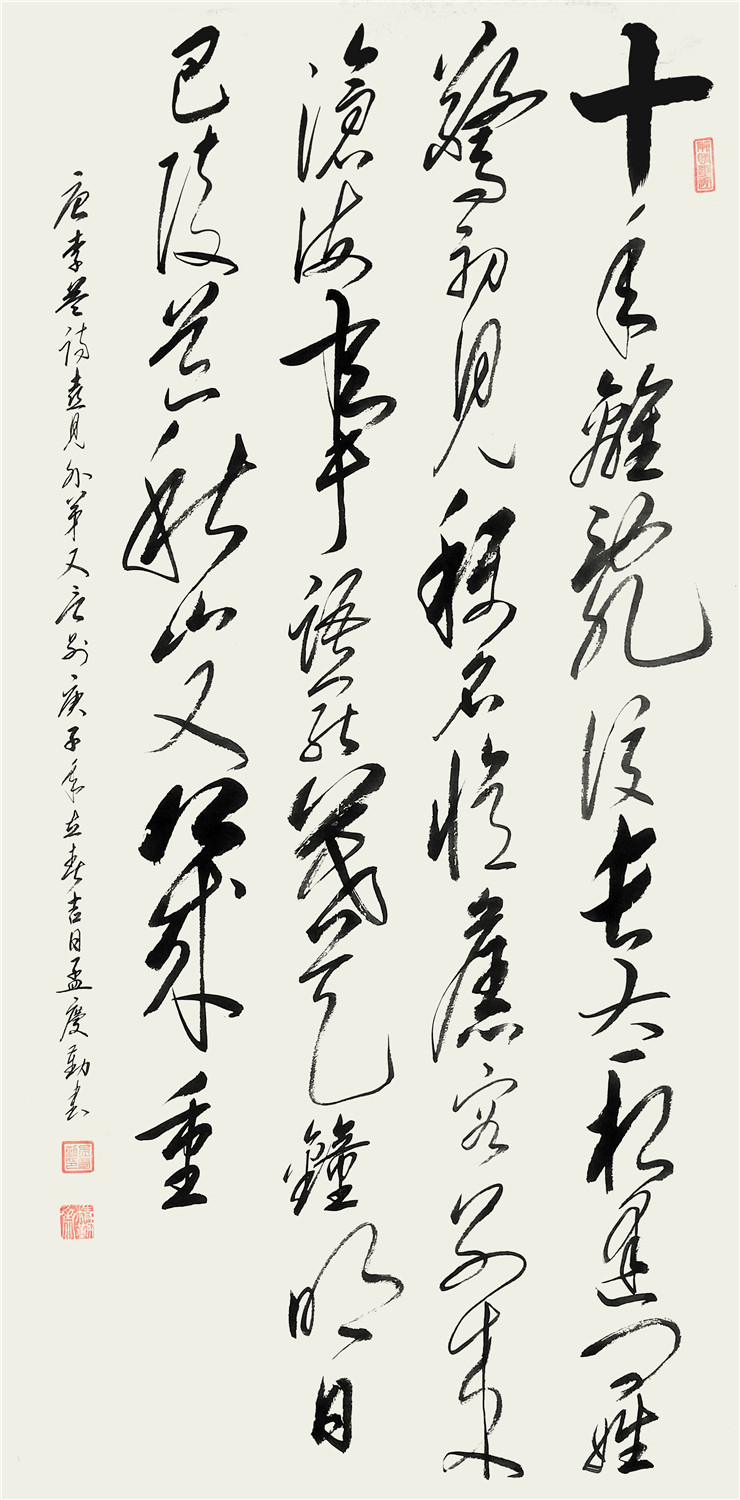 十年離亂後長大一相逢問姓
驚初見稱名憶舊容別來
滄海事語罷暮天鐘明日
巴陵道秋山又幾重
唐李益詩喜見外弟又言別庚子年立春吉日孟慶勤書